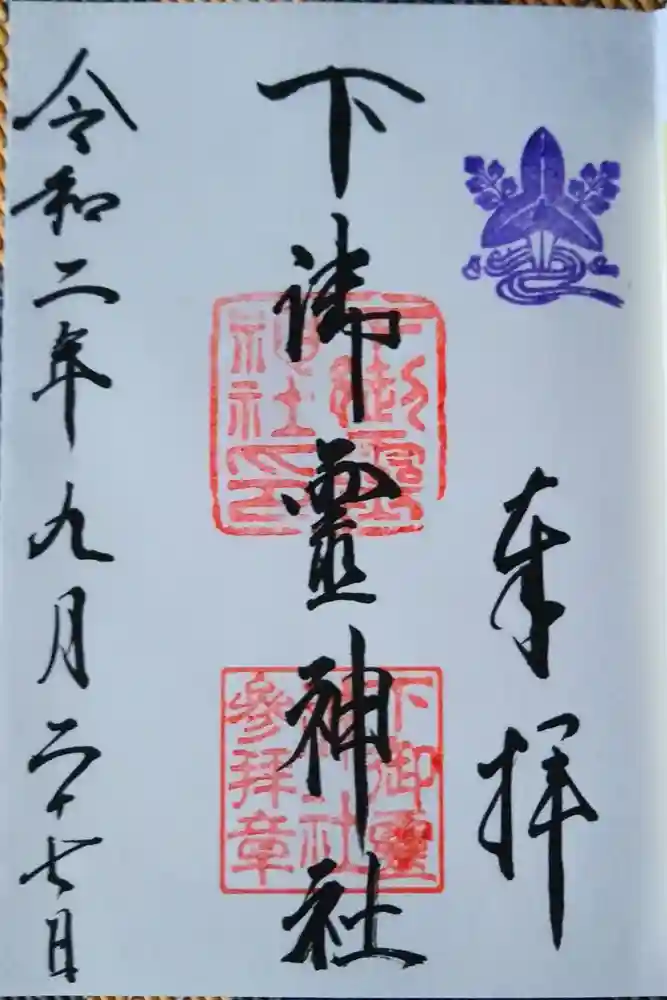 奉拝
下御靈神社
下御靈神社印
下御靈神社参拜章
令和二年九月二十七日